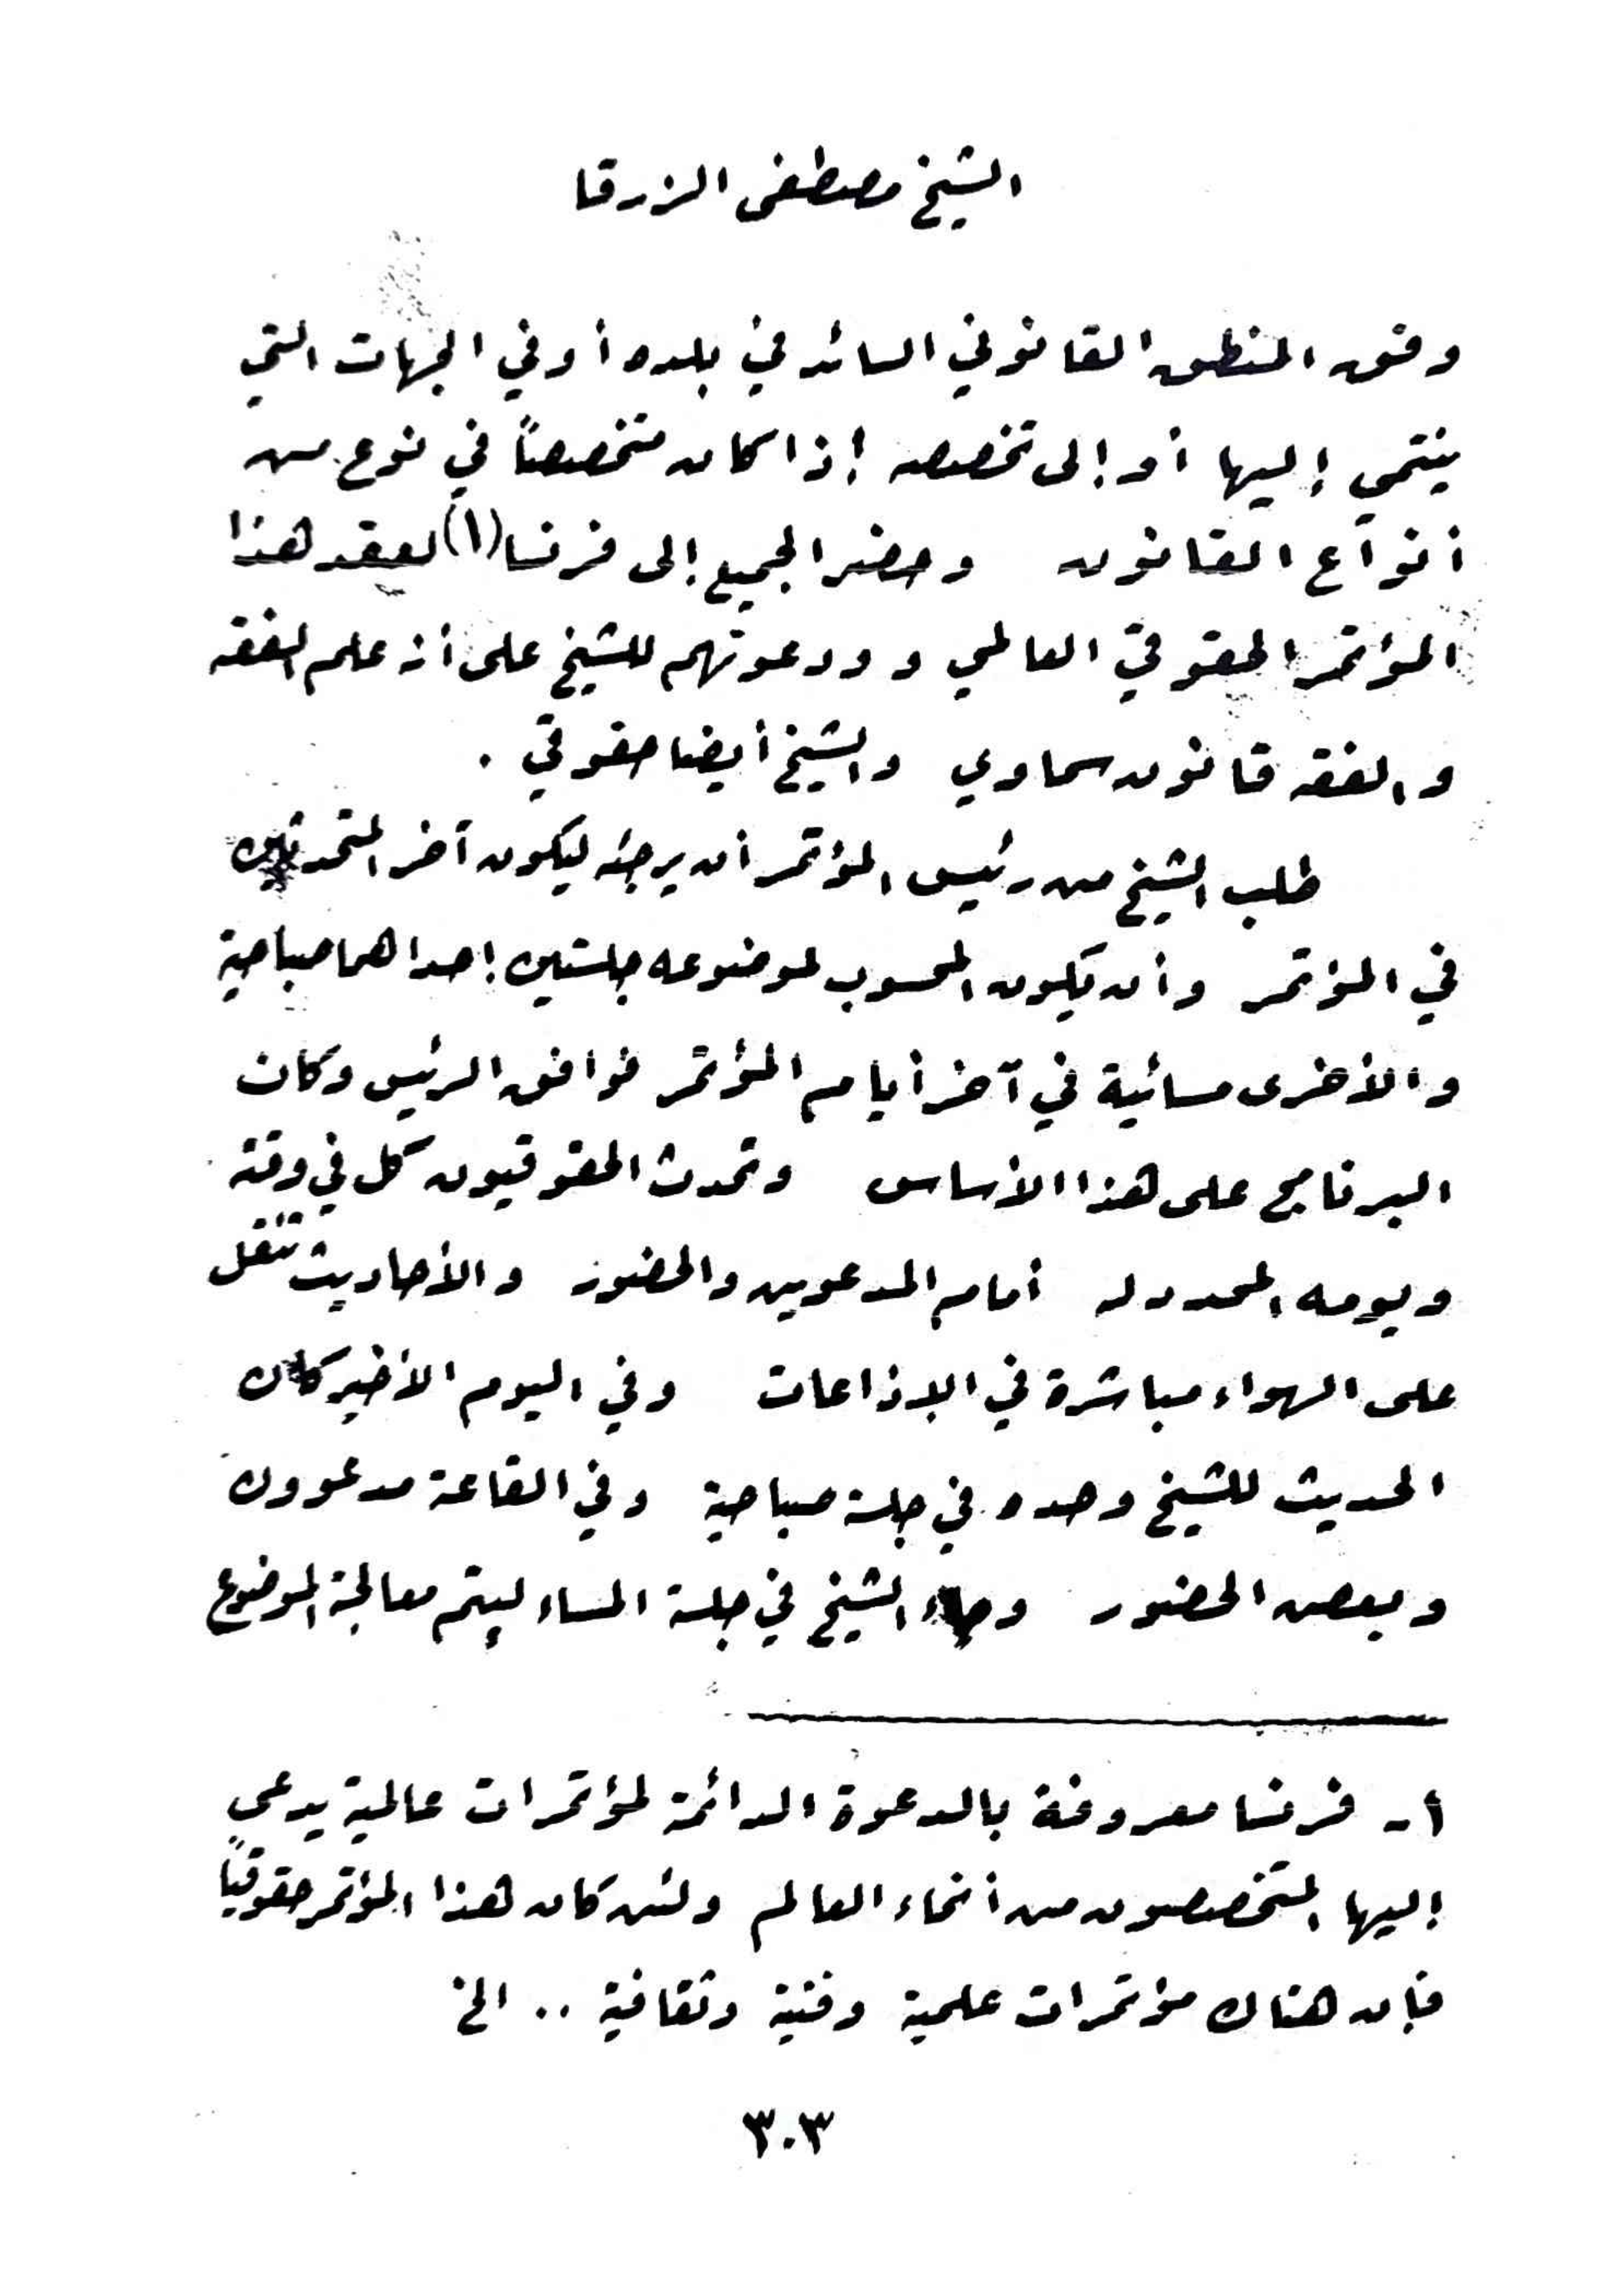 الشيخ مصطفى الزرقا
وفق المنطق القانوني السائد في بلده أو في الجهات التي
ينتمي إليها أو إلى تخصصه إذا كان متخصصاً في نوع من
أنواع القانون وحضر الجميع إلى فرنسا (١) لعقد هذا
المؤتمر الحقوقي العالمي و ودعوتهم للشيخ على أن علم الفقه
والفقه قانون سماوي والشيخ أيضا حقوقي .
طلب الشيخ من رئيس المؤتمر أن يرجئه ليكون آخر المتحدثين
في المؤتمر وأن تكون المحسوب لموضوعه جلستين إحداهما صباحية
والأخرى مسائية في آخر أيام المؤتمر فوافق الرئيس وكان
البرنامج على هذا الأساس وتحدث الحقوقيون كل في وقته
ويومه المحدد له أمام المدعوين والحضور والأحاديث تنقل
على الهواء مباشرة في الإذاعات وفي اليوم الأخير كان
الحديث للشيخ وحده في جلسة صباحية وفي القاعة مدعوون
وبعض الحضور وجاء الشيخ في جلسة المساء ليتم معالجة الموضوع
أ - فرنسا معروفة بالدعوة الدائمة لمؤتمرات عالمية يدعى
إليها المتخصصون من أنحاء العالم ولئن كان هذا المؤتمر حقوقياً
فإن هناك مؤتمرات علمية وفنية وثقافية .. الخ
٣٠٣